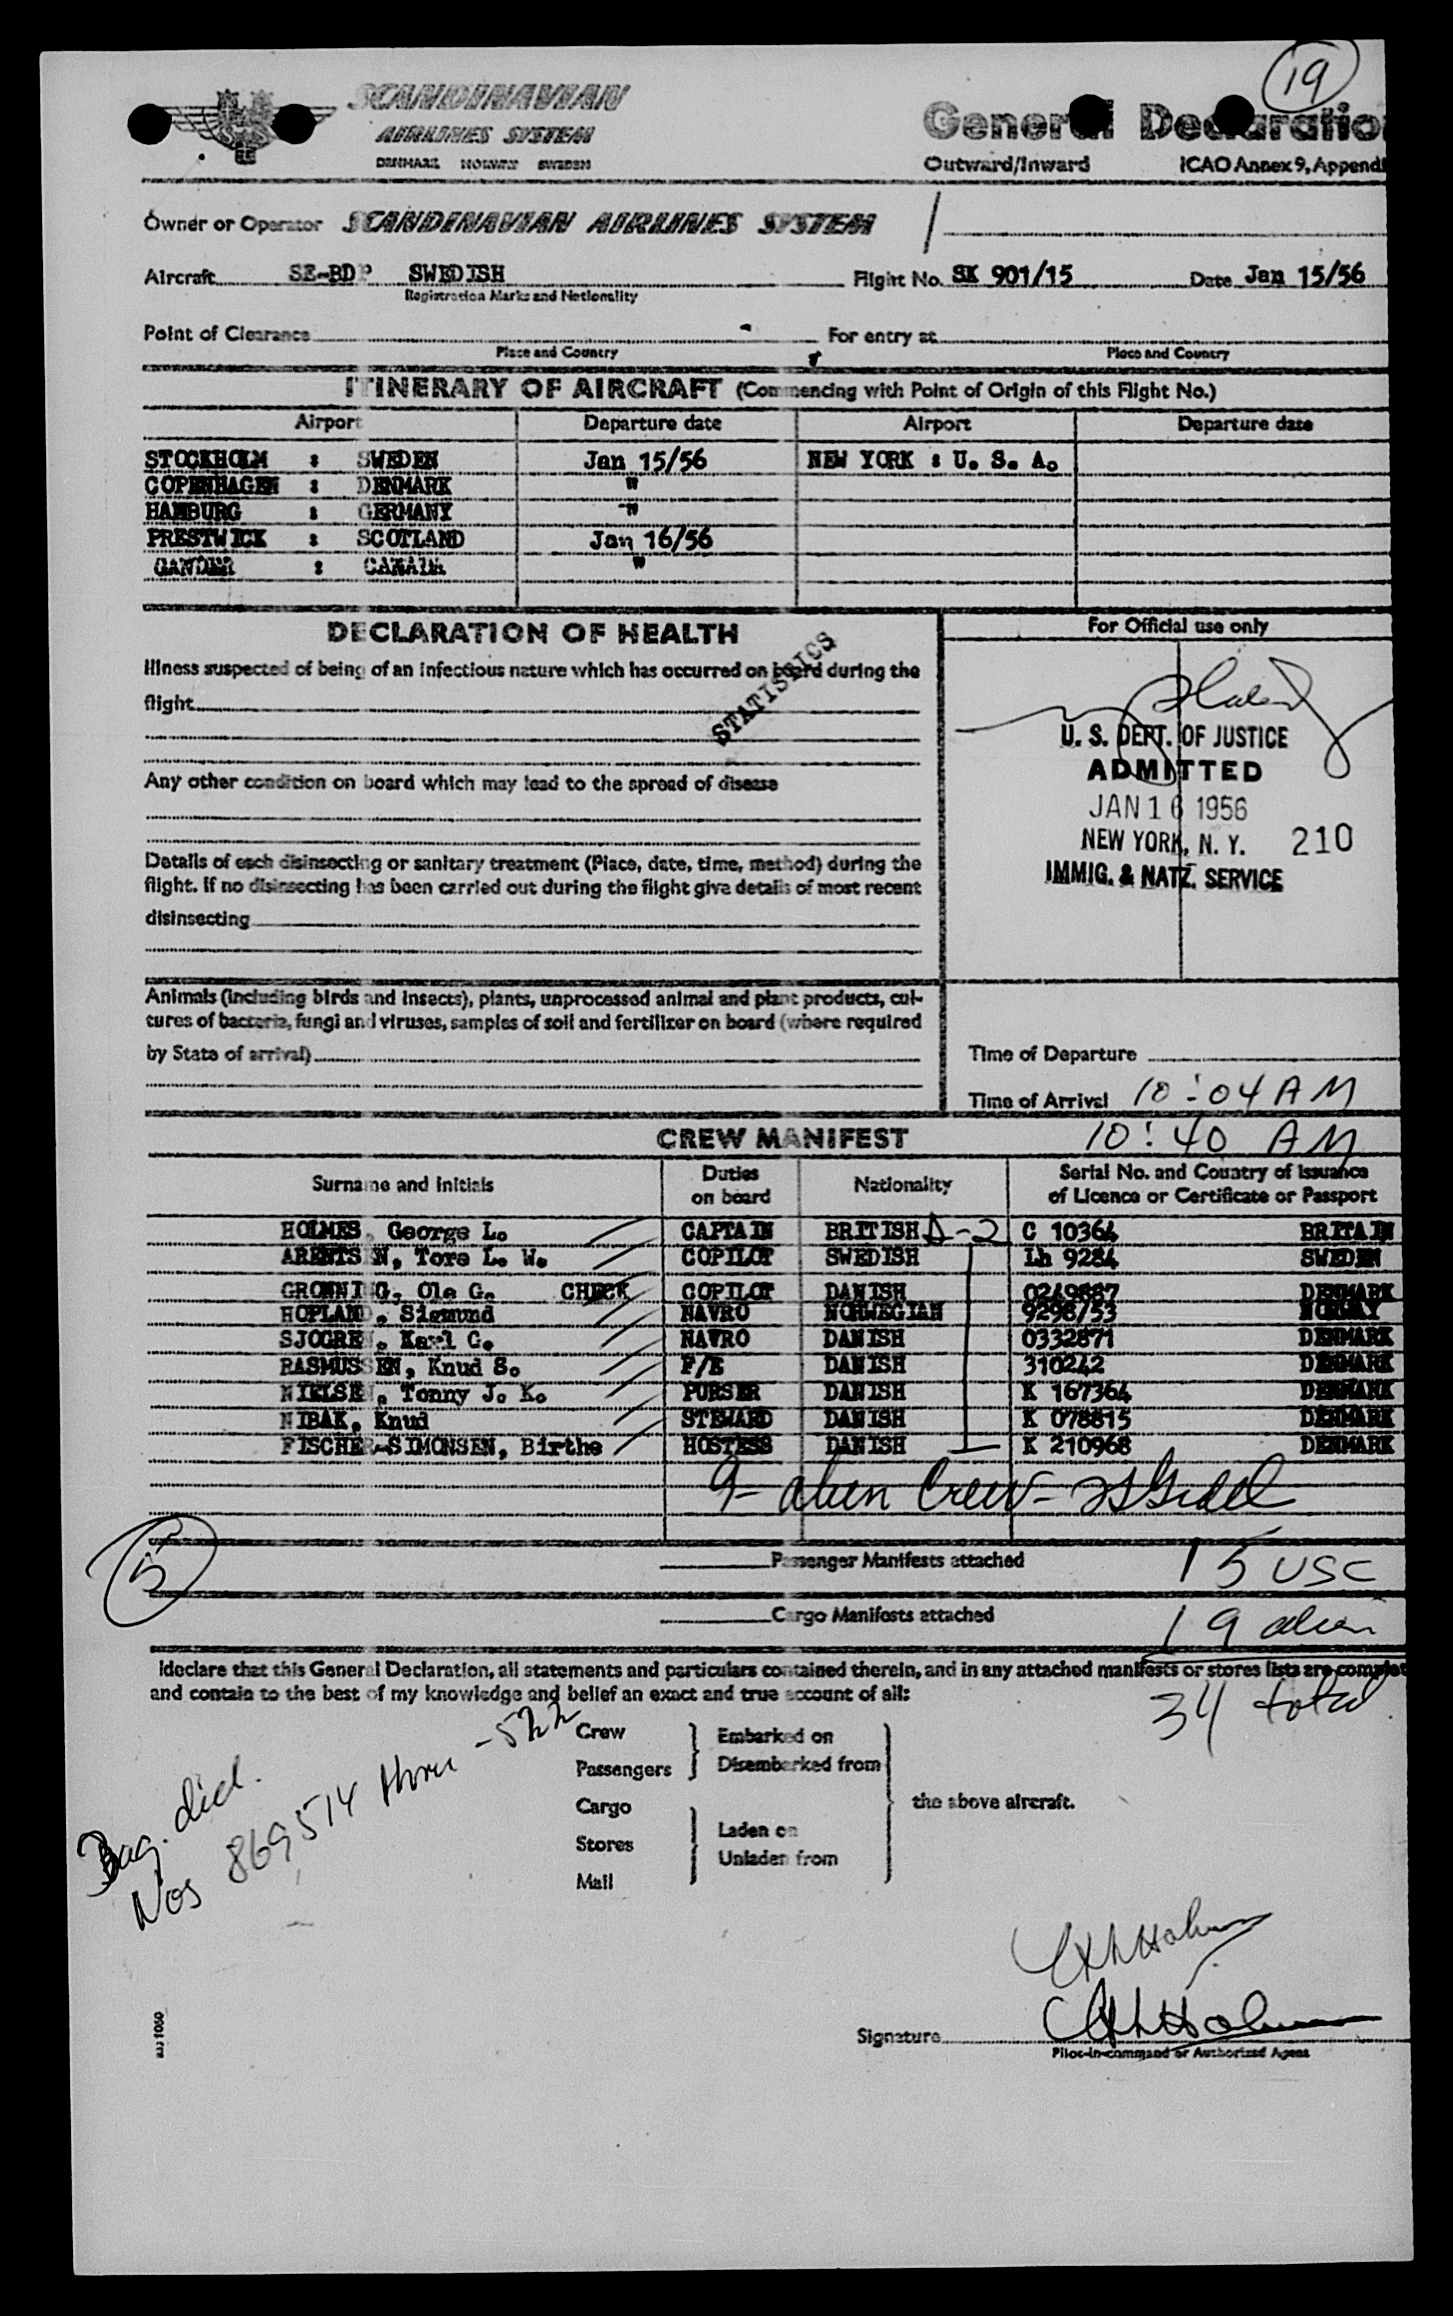 19
SCANDINAVIAN
AIRLINES SYSTEM
DENMARK NORWAY SWEDEN
General Declaratio
Outward/Inward ICAO Annex 9, Appendi
Owner or Operator SCANDINAVIAN AIRLINES SYSTEM
Aircraft SE-BDP SWEDISH Flight No. SK 901/15 Date Jan 15/56
Registration Marks and Nationality
Point of Clearance For entry at
Place and Country Place and Country
ITINERARY OF AIRCRAFT (Commencing with Point of Origin of this Flight No.)
Airport Departure date Airport Departure date
STOCKHOLM : SWEDEN Jan 15/56 NEW YORK : U. S. A.
COPENHAGEN : DENMARK "
HAMBURG : GERMANY -"
PRESTWICK : SCOTLAND Jan 16/56
GANDER : CANADA "
DECLARATION OF HEALTH
Illness suspected of being of an infectious nature which has occurred on board during the
flight
STATISTICS
Any other condition on board which may lead to the spread of disease
Details of each disinsecting or sanitary treatment (Place, date, time, method) during the
flight. If no disinsecting has been carried out during the flight give details of most recent
disinsecting
Animals (including birds and insects), plants, unprocessed animal and plant products, cul-
tures of bacteria, fungi and viruses, samples of soil and fertilizer on board (where required
by State of arrival)
For Official use only
U. S. DEPT. OF JUSTICE
ADMITTED
JAN 16 1956
NEW YORK, N. Y. 210
IMMIG. & NATZ. SERVICE
Time of Departure
Time of Arrival 10:04 AM
10:40 AM
CREW MANIFEST
Surname and Initials Duties on board Nationality Serial No. and Country of Issuance of Licence or Certificate or Passport
HOLMES, George L. CAPTAIN BRITISH D-2 C 10364 BRITAIN
ARENTSEN, Tore L. W. COPILOT SWEDISH Lh 9284 SWEDEN
GRONNING, Ole G. CHECK COPILOT DANISH 0249887 DENMARK
HOPLAND, Sigmund NAVRO NORWEGIAN 9298/53 NORWAY
SJOGREN, Karl G. NAVRO DANISH 0332871 DENMARK
RASMUSSEN, Knud S. F/E DANISH 310242 DENMARK
NIELSEN, Tonny J. K. PURSER DANISH K 167364 DENMARK
NIBAK, Knud STEWARD DANISH K 078815 DENMARK
FISCHER-SIMONSEN, Birthe HOSTESS DANISH K 210968 DENMARK
9- alien Crew-
5
Passenger Manifests attached 15 USC
Cargo Manifests attached 19 alien
I declare that this General Declaration, all statements and particulars contained therein, and in any attached manifests or stores lists are complet
and contain to the best of my knowledge and belief an exact and true account of all:
34 total
Crew
Passengers
Embarked on
Disembarked from
Cargo
Stores
Mail
Laden on
Unladen from
the above aircraft.
Bag. decl.
Nos 869514 thru -522
Signature
Pilot-in-command or Authorized Agent